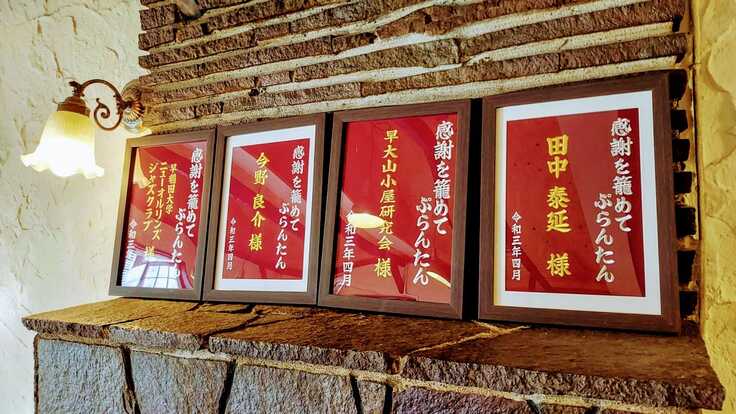 感謝を籠めて
ぷらんたん
田中 泰延 様
令和三年四月
感謝を籠めて
ぷらんたん
早大山小屋研究会 様
令和三年四月
感謝を籠めて
ぷらんたん
今野 良介 様
令和三年四月
感謝を籠めて
ぷらんたん
早稲田大学
ニューオルリンズ
ジャズクラブ 様
令和三年